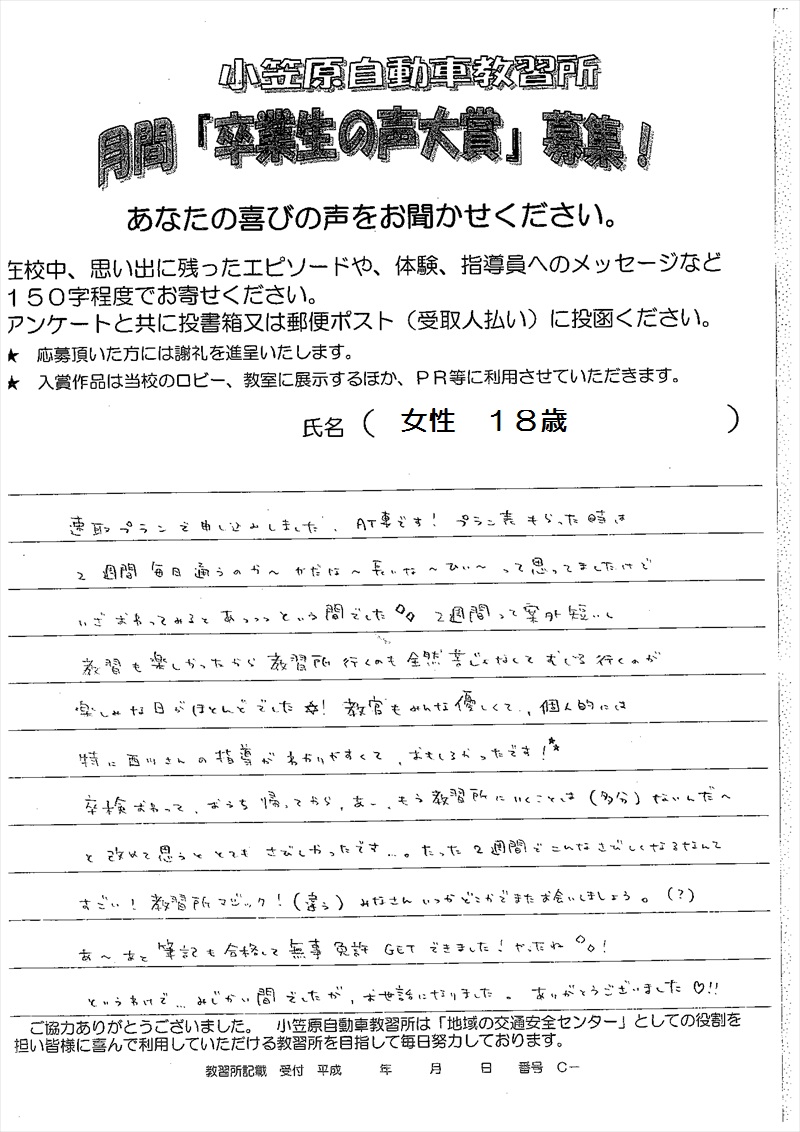 小笠原自動車教習所
月間「卒業生の声大賞」募集！
あなたの喜びの声をお聞かせください。
在校中、思い出に残ったエピソードや、体験、指導員へのメッセージなど
１５０字程度でお寄せください。
アンケートと共に投書箱又は郵便ポスト（受取人払い）に投函ください。
★ 応募頂いた方には謝礼を進呈いたします。
★ 入賞作品は当校のロビー、教室に展示するほか、ＰＲ等に利用させていただきます。
氏名（ 女性　１８歳 ）
速取プランで申し込みしました、AT車です！プラン表もらった時は
2週間毎日通うのか〜かだな〜長いな〜ひい〜って思ってましたけど
いざおわってみるとあっっっという間でした 2週間って案外短いし
教習も楽しかったから教習所行くのも全然苦じゃなくてむしろ行くのが
楽しみな日がほとんどでした☆！教官もみんな優しくて、個人的には
特に西川さんの指導がわかりやすくて、おもしろかったです！**
卒検おわって、おうち帰ってから、あー、もう教習所にいくことは（多分）ないんだ〜
と改めて思うととてもさびしかったです…。たった2週間でこんなさびしくなるなんて
すごい！教習所マジック！（違う）みなさんいつかどこかでまたお会いしましょう。（？）
あ〜あと筆記も合格して無事免許GETできました！やったね ！
というわけで…みじかい間でしたが、お世話になりました。ありがとうございました♡!!
ご協力ありがとうございました。　小笠原自動車教習所は「地域の交通安全センター」としての役割を
担い皆様に喜んで利用していただける教習所を目指して毎日努力しております。
教習所記載　受付　平成　　年　　月　　日　　番号　Ｃ－